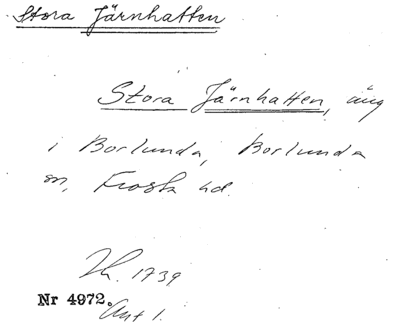 Stora Järnhatten
Stora Järnhatten, äng
i Borlunda, Borlunda
sn, Frosta hd.
1739
Nr 4972.
Akt 1.